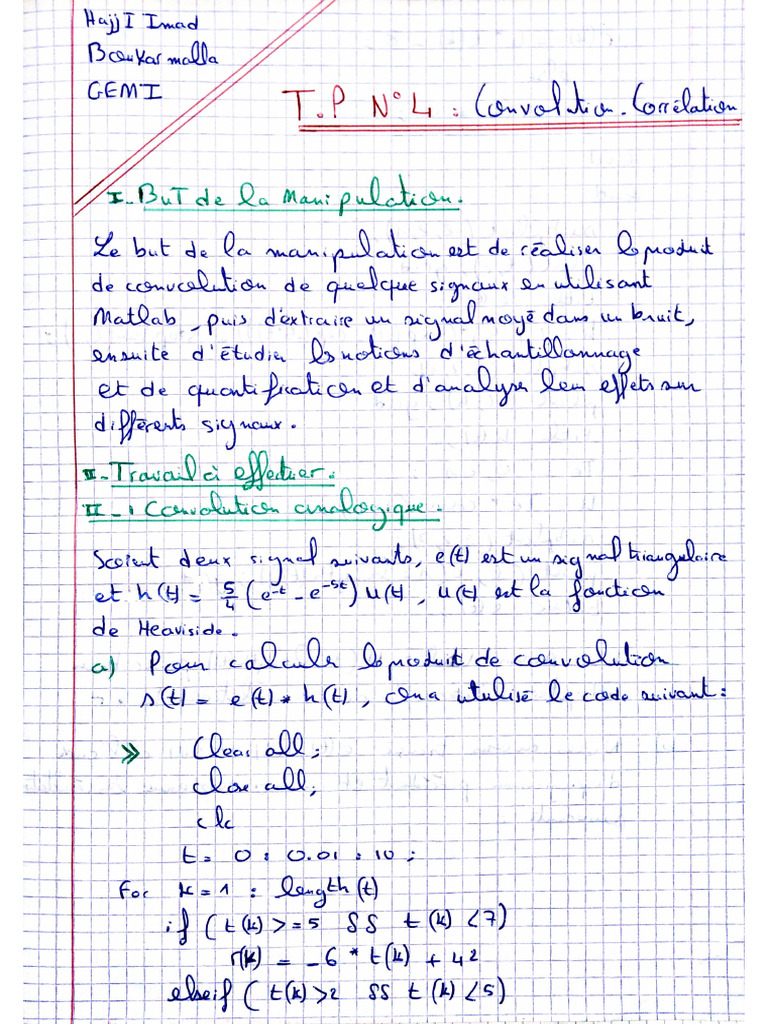 Hajji Imad
Boukarmalla
GEMI
T.P N°4 : Convolution-Corrélation
I- But de la Manipulation.
Le but de la manipulation est de réaliser le produit
de convolution de quelque signaux en utilisant
Matlab, puis d'extraire un signal noyé dans un bruit,
ensuite d'étudier les notions d'échantillonnage
et de quantification et d'analyser leur effets sur
différents signaux.
II- Travail à effectuer.
II-1 Convolution analogique.
Soient deux signal suivants, e(t) est un signal triangulaire
et h(t) = 5/4 (e^-t - e^-5t) u(t), u(t) est la fonction
de Heaviside.
a) Pour calculer le produit de convolution
s(t) = e(t) * h(t), on a utilisé le code suivant :
>> Clear all;
close all;
clc
t = 0 : 0.01 : 10;
for k = 1 : length(t)
if (t(k) >= 5 && t(k) < 7)
r(k) = -6 * t(k) + 42
elseif (t(k) > 2 && t(k) < 5)